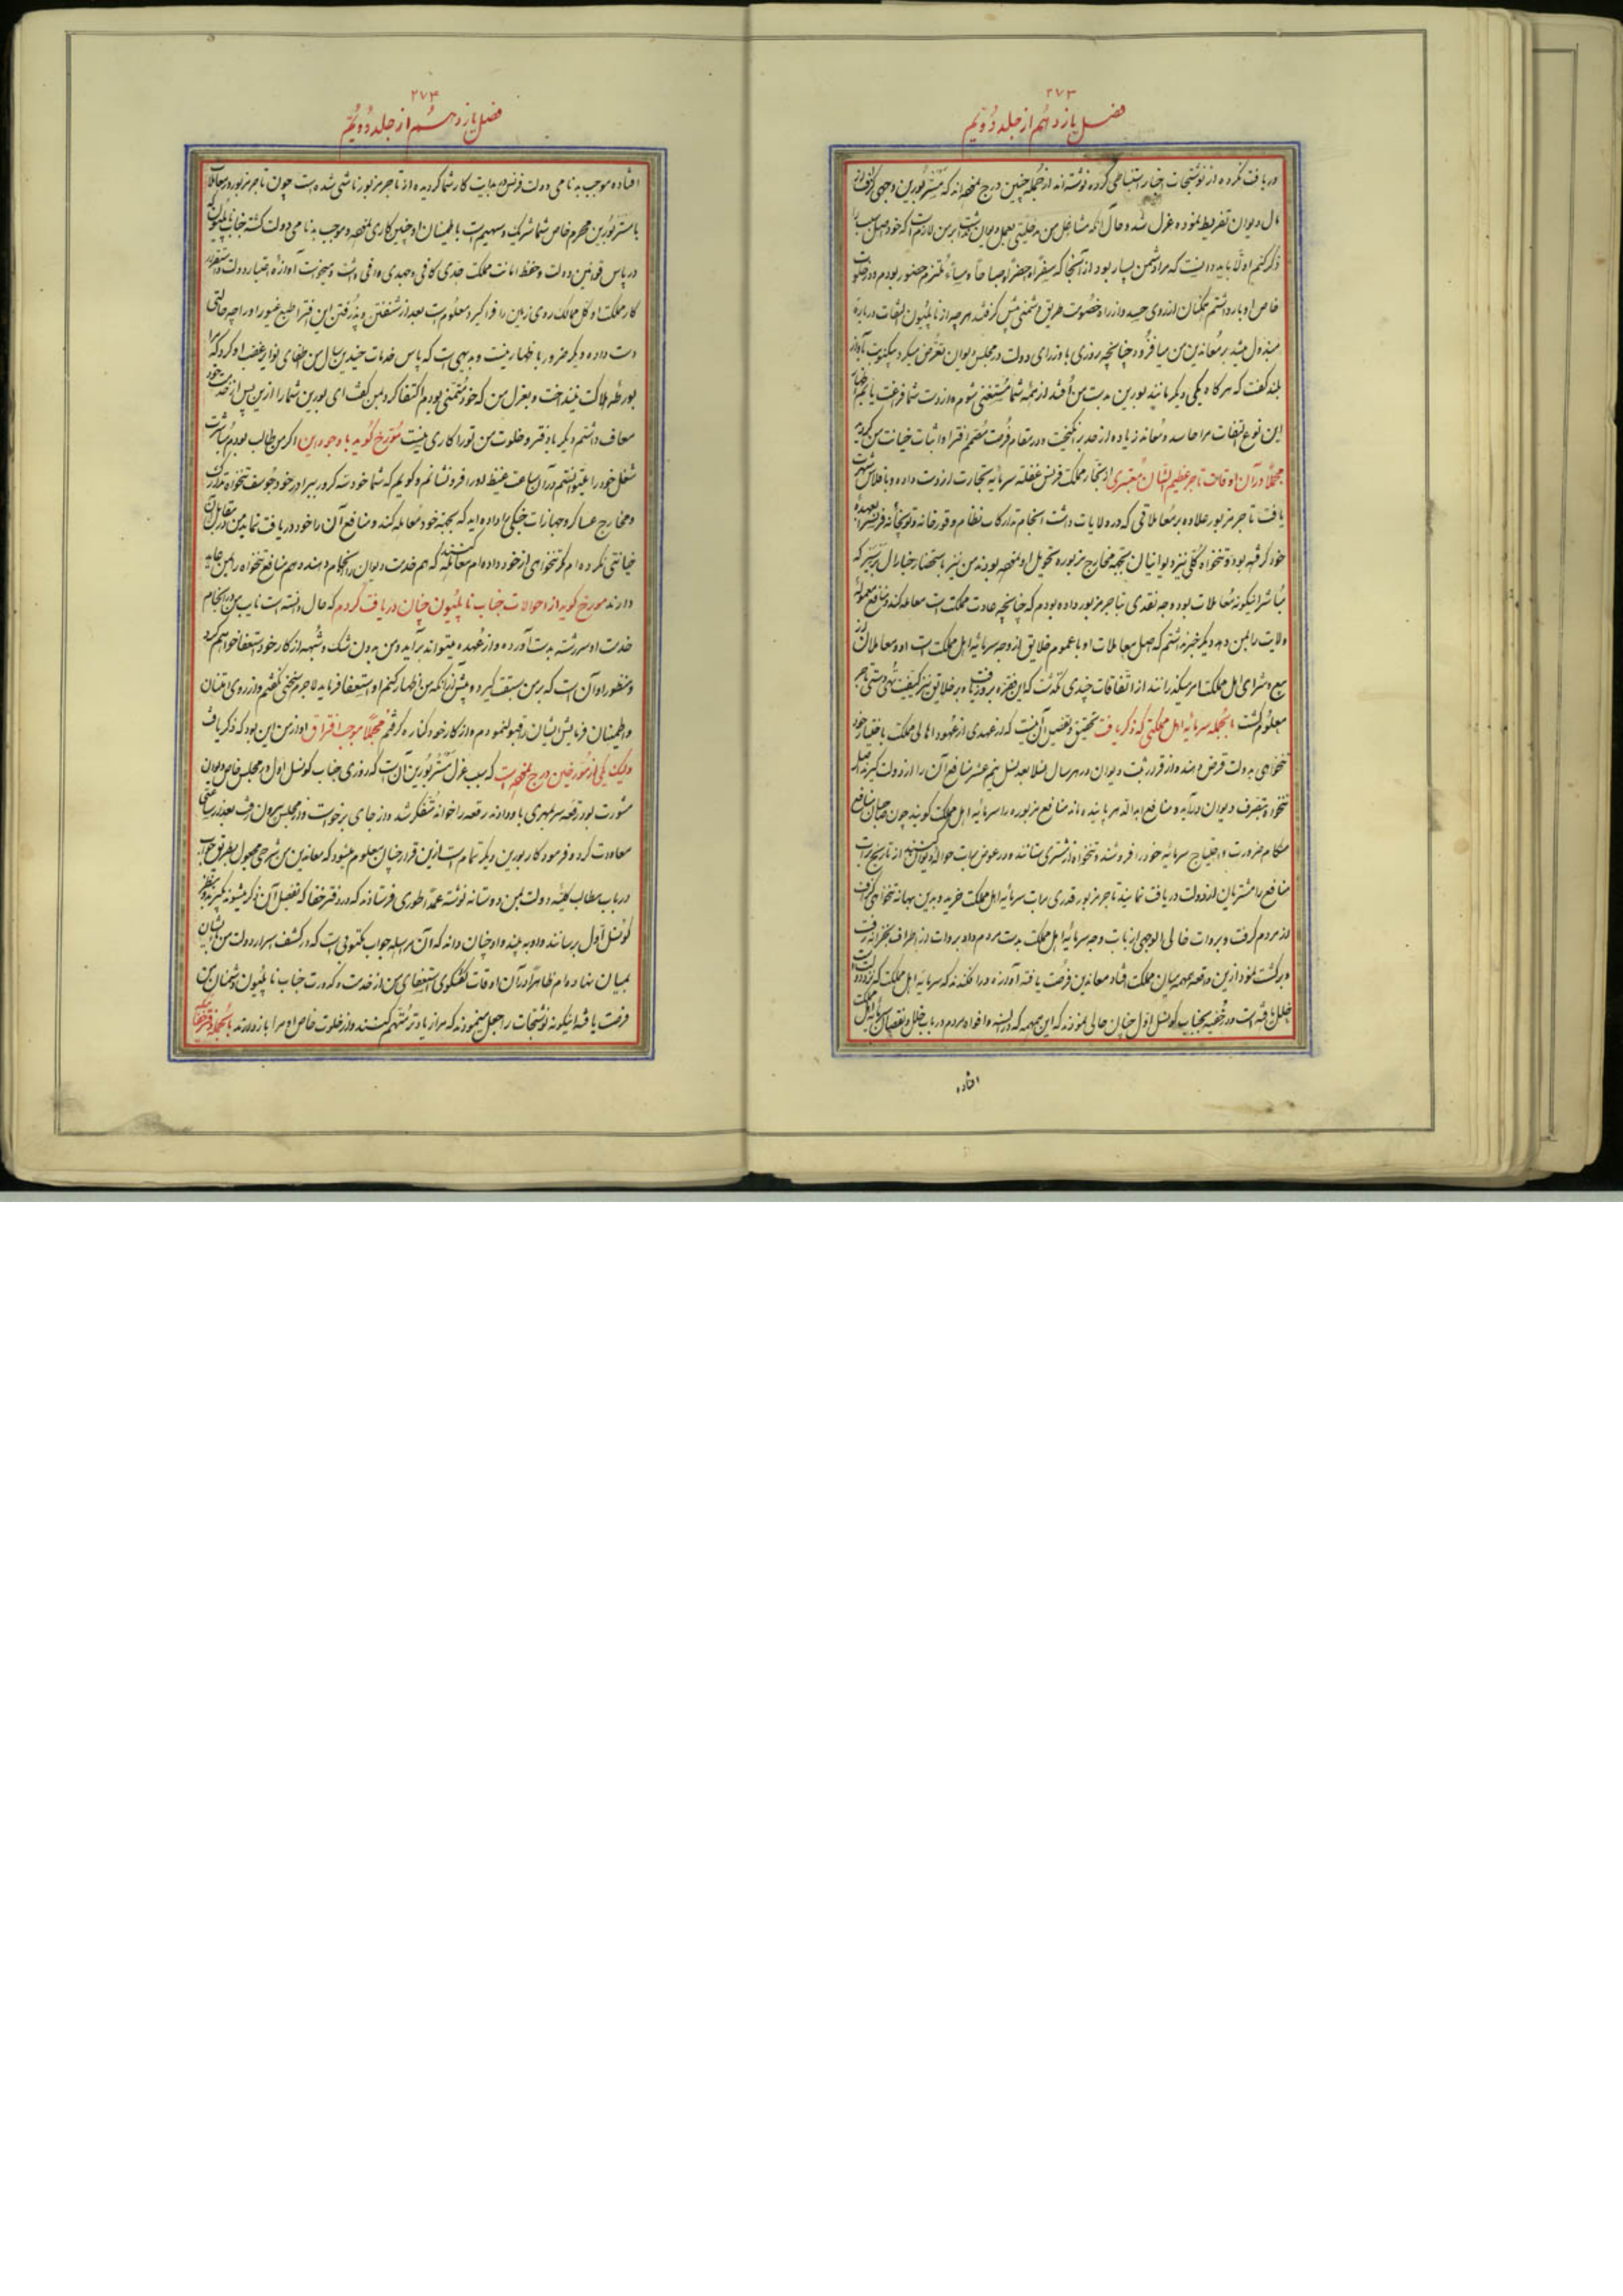 ۲۷۳
فصل یازدهم از جلد دویم
دریافت کرده از نوشتجات اخبار استنباطی کرده نوشته‌اند از جمله چنین درج
مال دیوان تفریط نموده عزل شد و حال آنکه
ذکر کنم اولا باید دانست که مرا دشمن بسیار بود از آنجا که سفرا و حضرا و صباحا و مساء ملتزم حضور بودم و در خلوت
خاص او بار داشتم همگنان از روی حسد و از راه خصومت طریق دشمنی پیش گرفتند هر چه از ناپلیون التفات درباره
مبذول میشد بر معاندین من میافزود چنانچه روزی با وزرای دولت در مجلس دیوان تعرض میکرد
بلند گفت که هر گاه یکی دیگر مانند بورین بدست من افتد از همه شما مستغنی شوم و از دست شما فراغت یابم
این نوع التفات مرا حاسد و معاند زیاده از حد برانگیخت و در مقام فرصت متهم افترا و اثبات خیانت من
مجملا در آن اوقات تاجر عظیم الشان معتبری از تجار مملکت فرنس غفلة سرمایه تجارت از دست داده و بافلاس شهرت
یافت تاجر مزبور علاوه بر معاملاتی که در ولایات داشت انجام تدارکات نظام و قورخانه و توپخانه
خود گرفته بود و تنخواه کلی نیز دیوانیان بجهة مخارج مزبوره تحویل او
مباشر اینگونه معاملات بود وجه نقدی بتاجر مزبور داده بودم که چنانچه عادت مملکت است معامله کند و منافع معموله
ولایت را بمن دهد دیگر خبر نداشتم که اصل معاملات او با عموم خلایق از وجه سرمایه اهل مملکت است
بیع و شرای اهل مملکت امر میگذرانند از اتفاقات چندی نگذشت که این فقره بروز یافت
معلوم گشت بالجمله سرمایه اهل مملکتی که ذکر یافت تحقیق و تفصیل آن اینست که در عهدی از عهود اهالی مملکت باختیار خود
تنخواهی بدولت قرض دهند و از قرار ثبت دیوان در هر سال نسلا بعد نسل نیم عشر منافع آن را از دولت گیرند
تنخواه بتصرف دیوان درآید و منافع ابدالدهر پاینده ماند منافع مزبوره را سرمایه اهل مملکت گویند چون صاحبان منافع
هنگام ضرورت و احتیاج سرمایه خود را فروشند و تنخواه از مشتری ستانند و در عوض برات حواله دیوان کنند از تاریخ برات
منافع را مشتریان از دولت دریافت نمایند تاجر مزبور قدری برات سرمایه اهل مملکت خرید و بدین بهانه تنخواهی گزاف
از مردم گرفت و بروات خالی الوجهی از بابت وجه سرمایه اهل مملکت بدست مردم داد بروات از اطراف بخزانه رفت
و برگشت نمود ازین واقعه همهمه میان مملکت افتاد معاندین فرصت یافته آوازه درافکندند که سرمایه اهل مملکت
خلل یافته است و در خفیه بجناب کونسل اول چنان حالی نمودند که این همهمه که در السنه و افواه مردم در باب خلل و نقصان سرمایه اهل
افتاده
۲۷۴
فصل یازدهم از جلد دویم
افتاده موجب بدنامی دولت فرنس و بدایت کار شما گردیده از تاجر مزبور ناشی شده است چون تاجر مزبور در معاملات
با مستر بورین محرم خاص شما شریک و سهیم است باطمینان او چنین کاری و موجب بدنامی دولت گشته جناب ناپلیون که
در پاس قوانین دولت و حفظ امانت مملکت جدی کافی و جهدی وافی داشت و میخواست آوازه اختیار دولت و استقرار
کار مملکت او کل ممالک روی زمین را فرا گیرد معلوم است بعد از شنفتن و پذرفتن این افترا طبع غیور او را چه حالتی
دست داده دیگر ضرور باظهار نیست و بدیهی است که پاس خدمات چندین ساله من اطفای نوایر غضب او کرد که مرا
بورطه هلاکت نینداخت و بعزل من که خود متمنی بودم اکتفا کرد بمن گفت ای بورین شما را ازین پس از خدمت خود
معاف داشتم دیگر با دفتر و خلوت من تو را کاری نیست مورخ گوید با وجود این اگر من طالب بودم مباشرت
شغل خود را میتوانستم در آن ساعت غیظ او را فرو نشانم و گویم که شما خود سه کرور ببرادر خود جوسف تنخواه تدارکات
و مخارج عساکر و جهازات جنگی داده‌اید که بجهة خود معامله کند و منافع آن را خود دریافت نماید من در مقابل آن
خیانتی نکرده‌ام گر تنخواهی از خود داده‌ام معامله کنند که هم خدمت دیوان را انجام دهند و هم منافع تنخواه را بمن عاید
دارند مورخ گوید از احوالات جناب ناپلیون چنان دریافت کردم که حال دانسته است نایب من در انجام
خدمت او سررشته بدست آورده و از عهده میتواند برآید و من بدون شک و شبهه از کار خود استعفا خواهم کرد
و منظور او آن است که بر من سبقت گیرد و پیش از آنکه من اظهار کنم او استعفا فرماید لاجرم سخنی نگفتم و از روی امتنان
و اطمینان فرمایش ایشان را قبول نمودم و از کار خود کناره گرفتم مجملا موجب افتراق او از من این بود که ذکر یافت
ولیک یکی از مورخین درج است که سبب عزل مستر بورین آن است که روزی جناب کونسل اول در مجلس خاص دیوان
مشورت بود رقعه سر بمهری باو دادند رقعه را خوانده متفکر شد و از جای برخواست و از مجلس بیرون رفت بعد از ساعتی
معاودت کرد و فرمود کار بورین دیگر تمام است ازین قرار چنان معلوم میشود که معاندین من شرحی مجعول بطریق جواب
در باب مطالب کلیه دولت بمن دوستانه نوشته عمدا طوری فرستادند که در دفتر خفا که تفصیل آن ذکر میشود بگیرند و بنظر
کونسل اول برسانند و او به بیند و او چنان داند که آن مراسله جواب مکتوبی است که در کشف اسرار دولت من بایشان
بمیان نهاده‌ام ظاهرا در آن اوقات گفتگوی استعفای من از خدمت و کدورت جناب ناپلیون دشمنان من
فرصت یافته اینگونه نوشتجات را جعل مینمودند که مرا زیادتر متهم کنند و از خلوت خاص او مرا باز دارند بالجمله دفتر خفائی